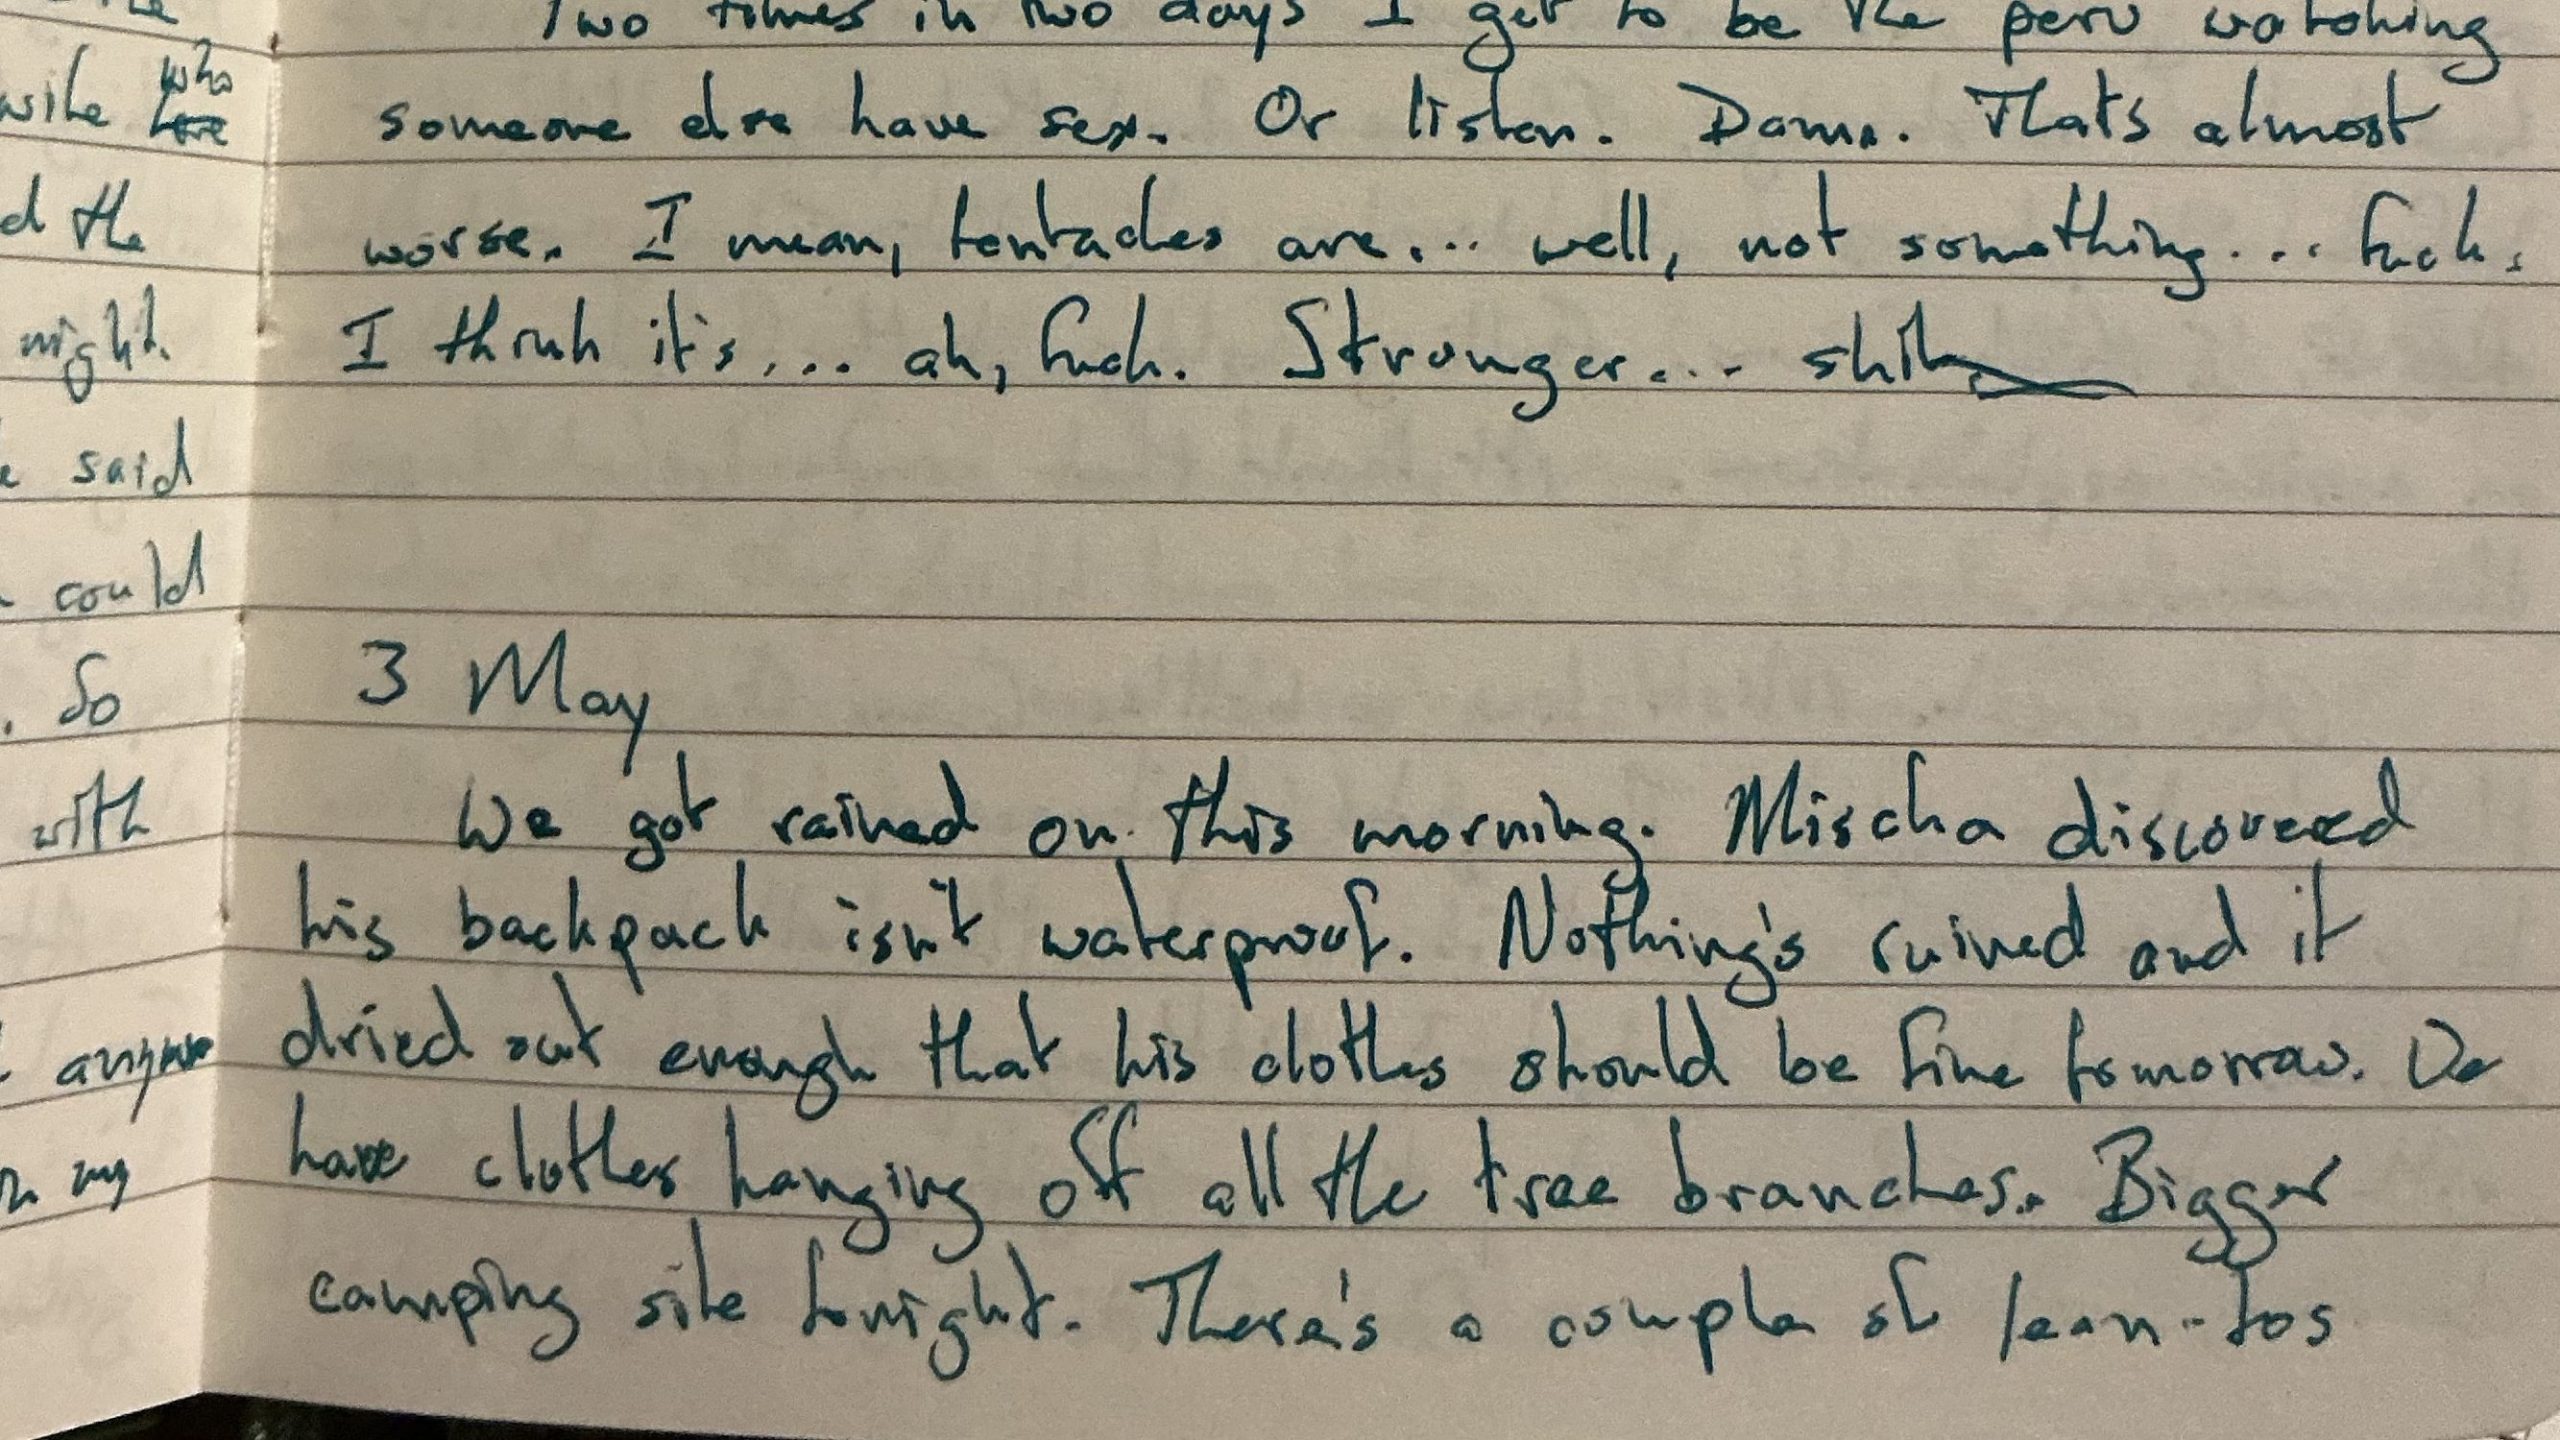 wite who
d the
might.
said
could
. So
with
my
Two times in two days I get to be the perv watching
someone else have sex. Or listen. Damn. Thats almost
worse. I mean, tentacles are... well, not something... fuck.
I think it's... ah, fuck. Stronger... shit
3 May
We got rained on this morning. Mischa discovered
his backpack isn't waterproof. Nothing's ruined and it
dried out enough that his clothes should be fine tomorrow. We
have clothes hanging off all the tree branches. Bigger
camping site tonight. There's a couple of lean-tos